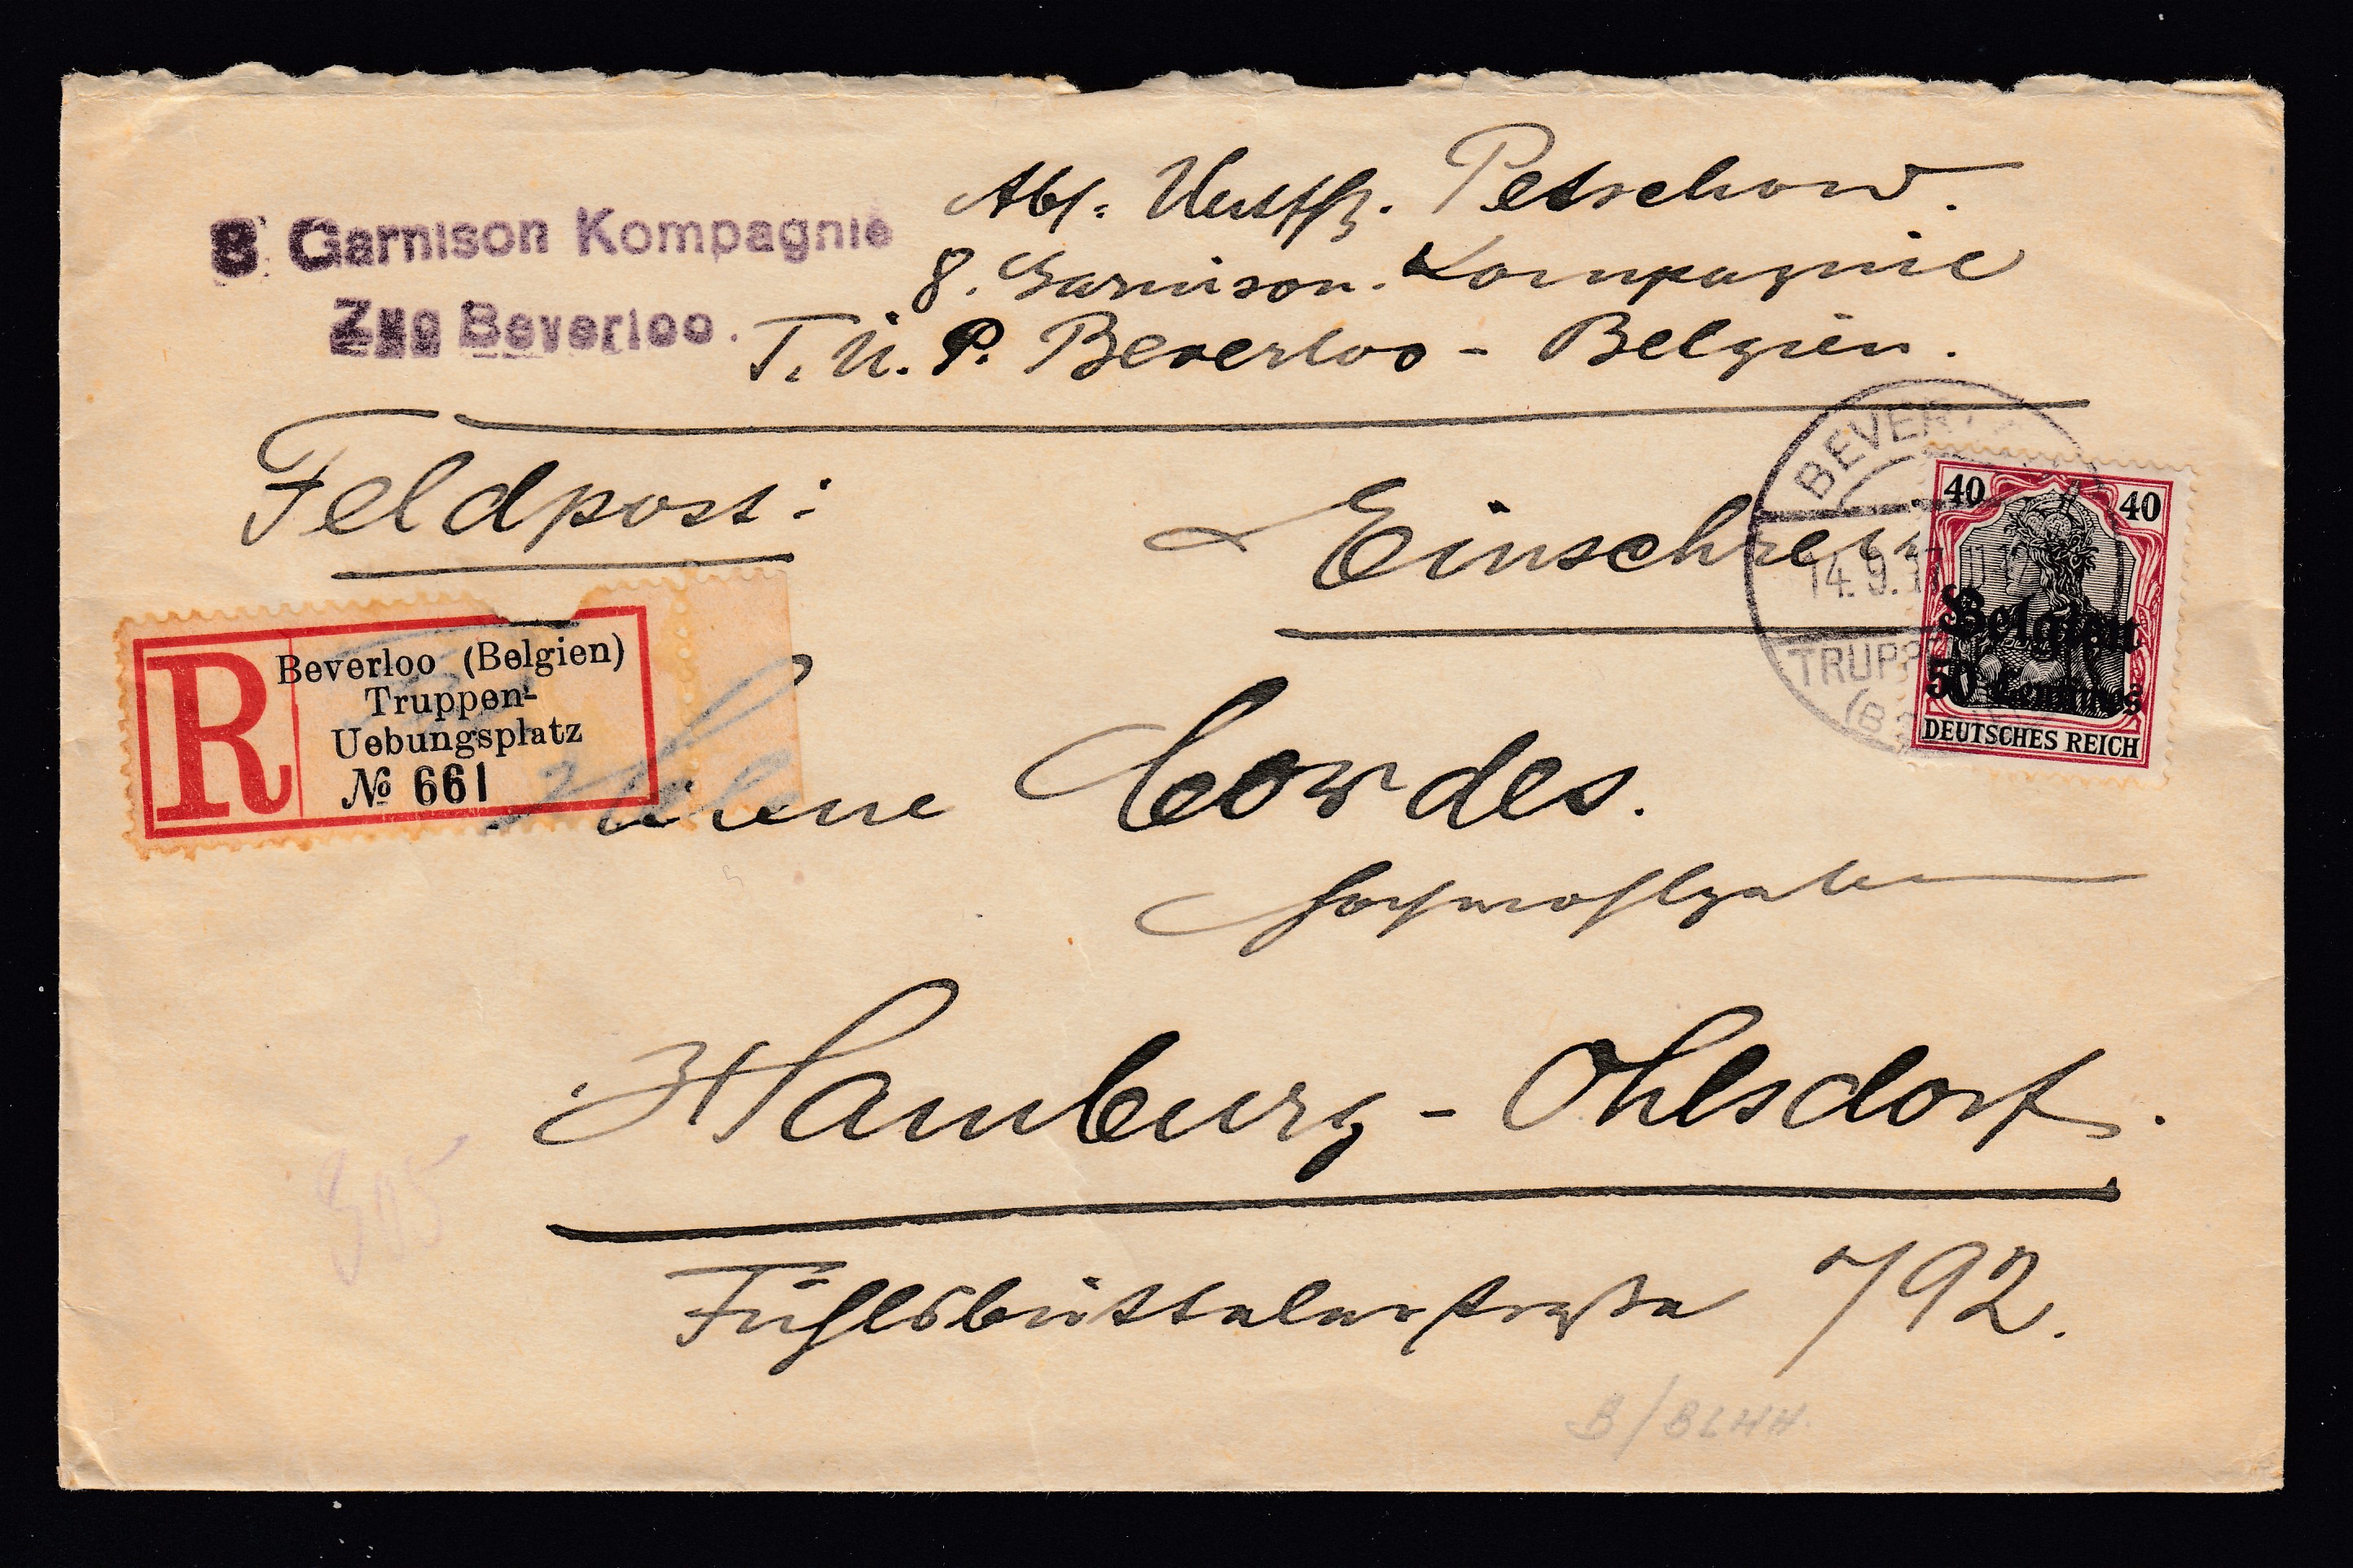 8. Garnison Kompagnie
Zug Beverloo.
Abs. Utffz. Petschow.
8. Garnison. Kompagnie
T. Ü. P. Beverloo - Belgien.
Feldpost:
Einschrei
BEVER
14.9.17
TRUPP
(B
40 40
Belgien
50 Centimes
DEUTSCHES REICH
R
Beverloo (Belgien)
Truppen-
Uebungsplatz
№ 661
Cordes.
Hochwohlgeboren
Hamburg - Ohlsdorf.
Fuhlsbüttelerstraße 792.
B/BLHH.